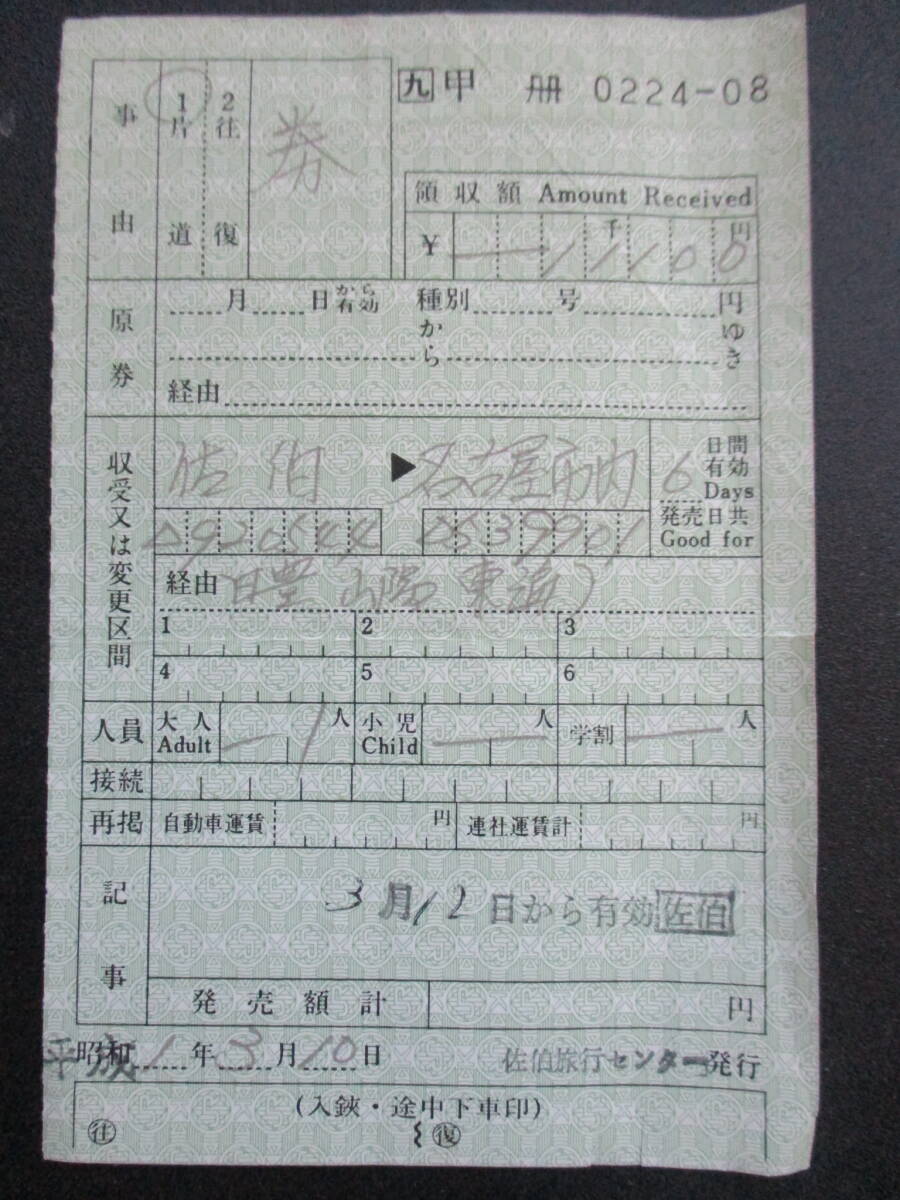 九 甲 冊 0224-08
事由 1片道 2往復 券
領収額 Amount Received
千 円
¥ 11100
原券 月 日から有効 種別 号 円
から ゆき
経由
収受又は変更区間 佐伯 ▶ 名古屋市内 6 日間有効 Days
発売日共 Good for
920544 639901
経由 日豊 山陽 東海
1 2 3
4 5 6
人員 大人 Adult 1 人 小児 Child 人 学割 人
接続
再掲 自動車運賃 円 連社運賃計 円
記事 3月12日から有効 佐伯
発売額計 円
昭和 平成 1年3月10日 佐伯旅行センター発行
(入鋏・途中下車印)
往 復